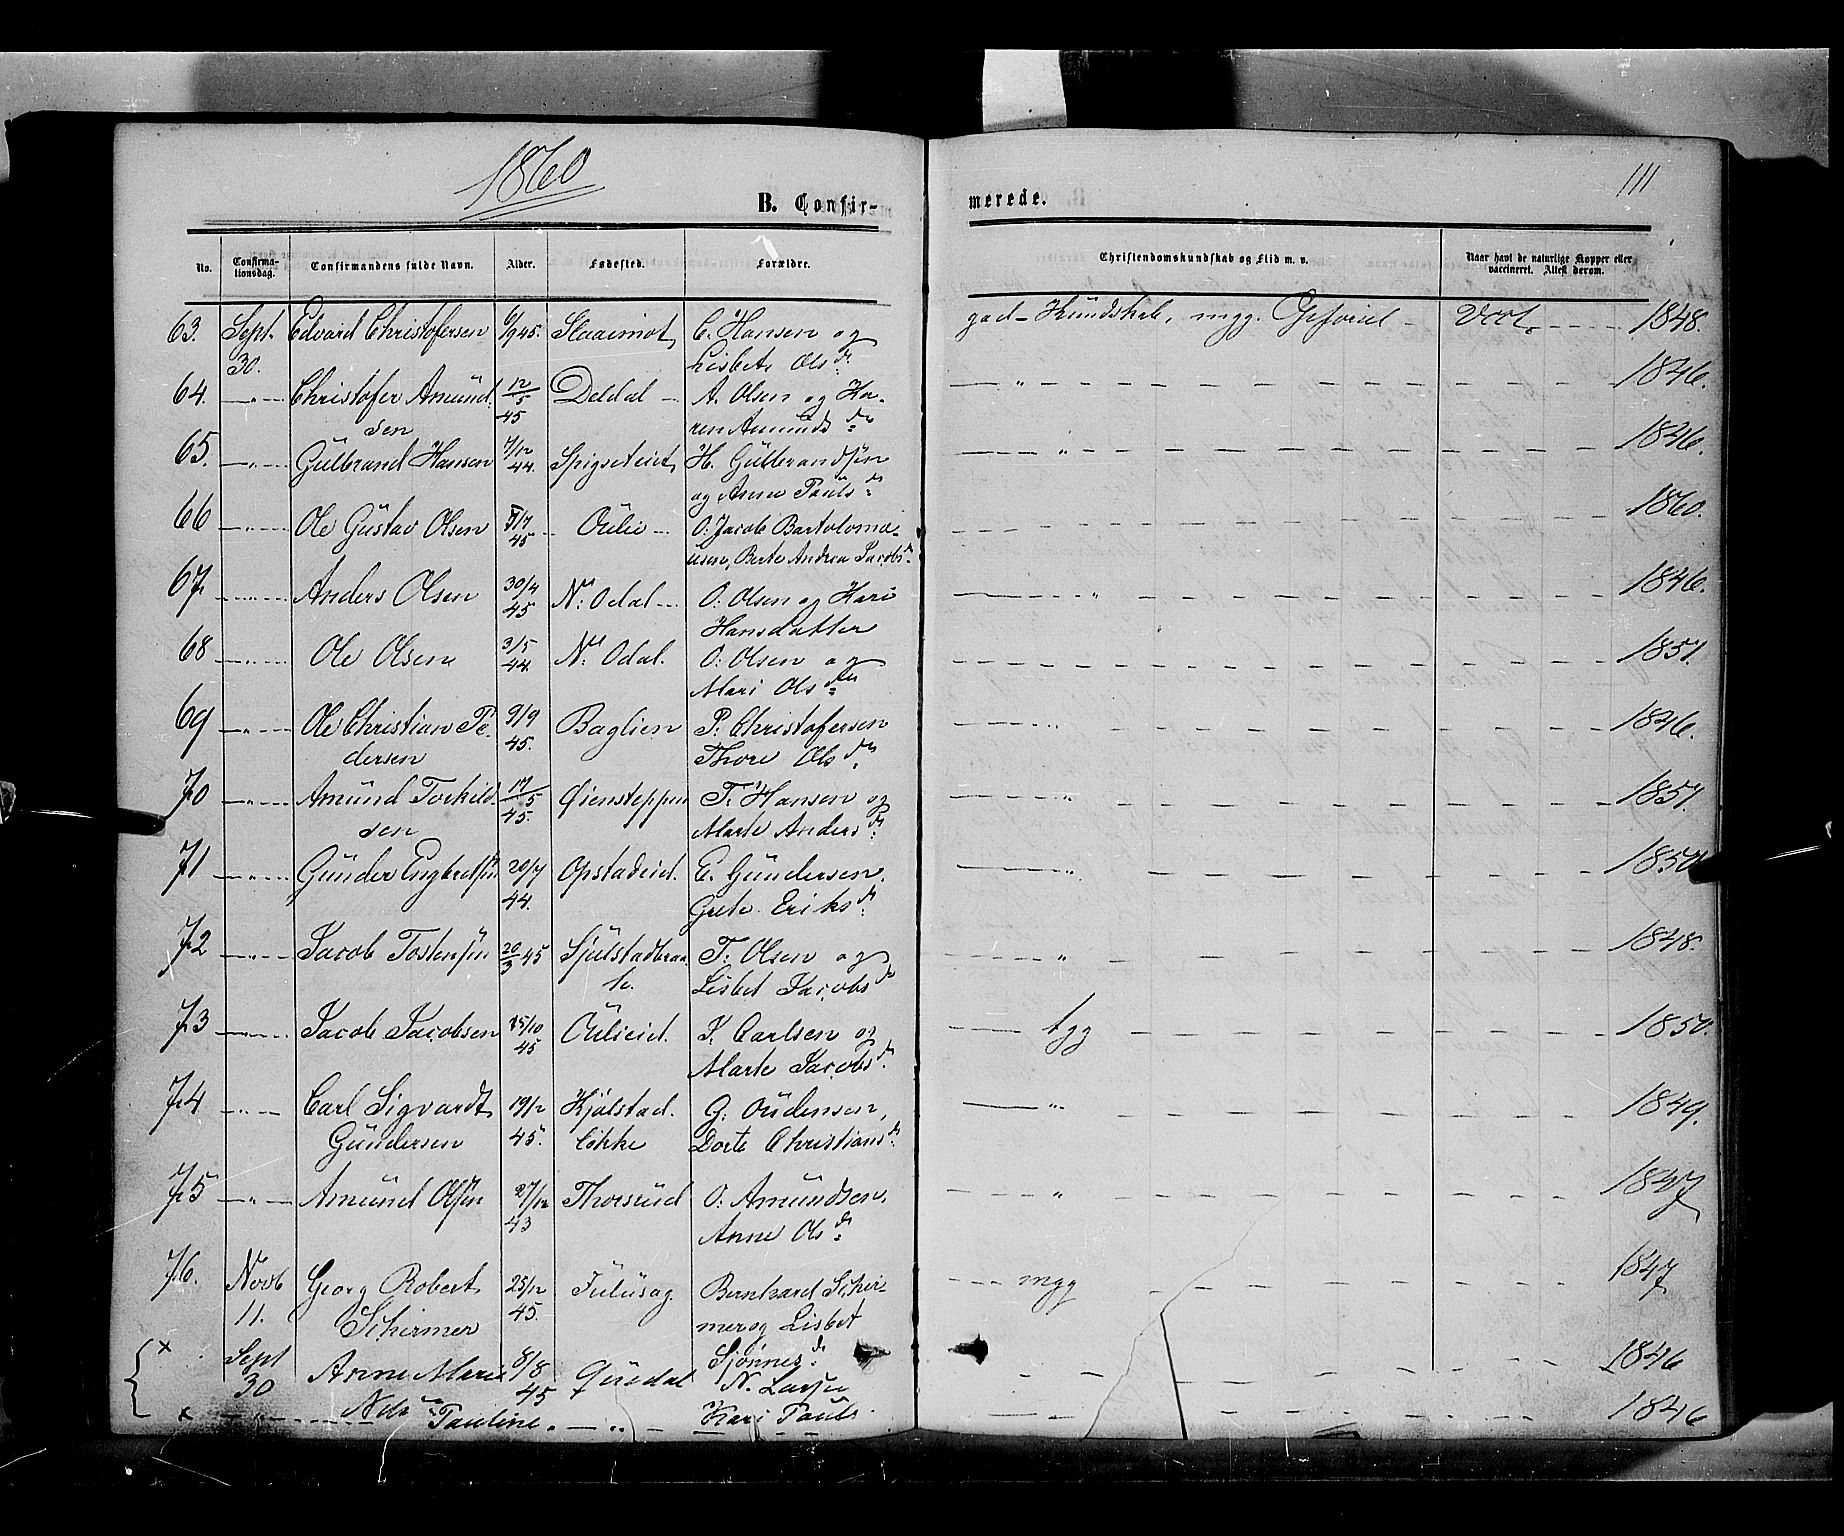 1860
111
B. Confirmerede.
No. Confirmationsdag. Confirmandens fulde Navn. Alder. Fødested. Forældre. Christendomskundskab og Flid m. v. Naar havt de naturlige Kopper eller vaccineret. Attest derom.
63. Sept. 30. Edvard Christofersen 6/9 45. C. Hansen og Lisbet Olsdr. god Kundskab, mgg. Vcct. 1848.
64. " Christofer Amundsen 12/5 45 Deldal A. Olsen og Karen Amundsdr " 1846.
65. " Gulbrand Hansen 7/12 44. Spigseteiet H. Gulbrandsen og Anne Paulsdr " 1846.
66 " Ole Gustav Olsen 45 Oulie O: Jacob Bartolomæusen, Berte Andrea Jacobsdr 1860.
67 " Anders Olsen 30/4 45 N: Odal O: Olsen og Kari Hansdatter " 1846.
68 " Ole Olsen 3/5 44. N: Odal. O: Olsen og Mari Olsdtr 1851.
69 " Ole Christian Pedersen 9/9 45. Baglien P. Christofersen Thore Olsdr " 1846.
70 " Amund Torkildsen 17/5 45. Øiensteppen T. Hansen og Marte Andersdr " 1851.
71 " Gunder Engbretsen 20/7 44. Opstadeid. E. Gundersen, Grete Eriksdr " 1850.
72 " Jacob Tostensen 20/3 45 Sjulstadbraate. T. Olsen og Lisbet Jacobsdr " 1848.
73 " Jacob Jacobsen 25/10 45 Oulieid. J. Carlsen og Marte Jacobsdr tgg 1850.
74 " Carl Sigvardt Gundersen 19/12 45. Kjølstad. løkke G. Oudensen, Dorte Christiansdr " 1849.
75 " Amund Olsen 27/12 43 Thorsrud O: Amundsen, Anne Olsdr " 1847
76. Novb 11. Georg Robert Schirmer 25/12 45. Fulusag. Bernhard Schirmer og Lisbet Sjønnesdr mgg 1847
x Sept 30 Anne Marie 8/8 45 N. Larsen 1846
x " Pauline " Kari Pauls 1846